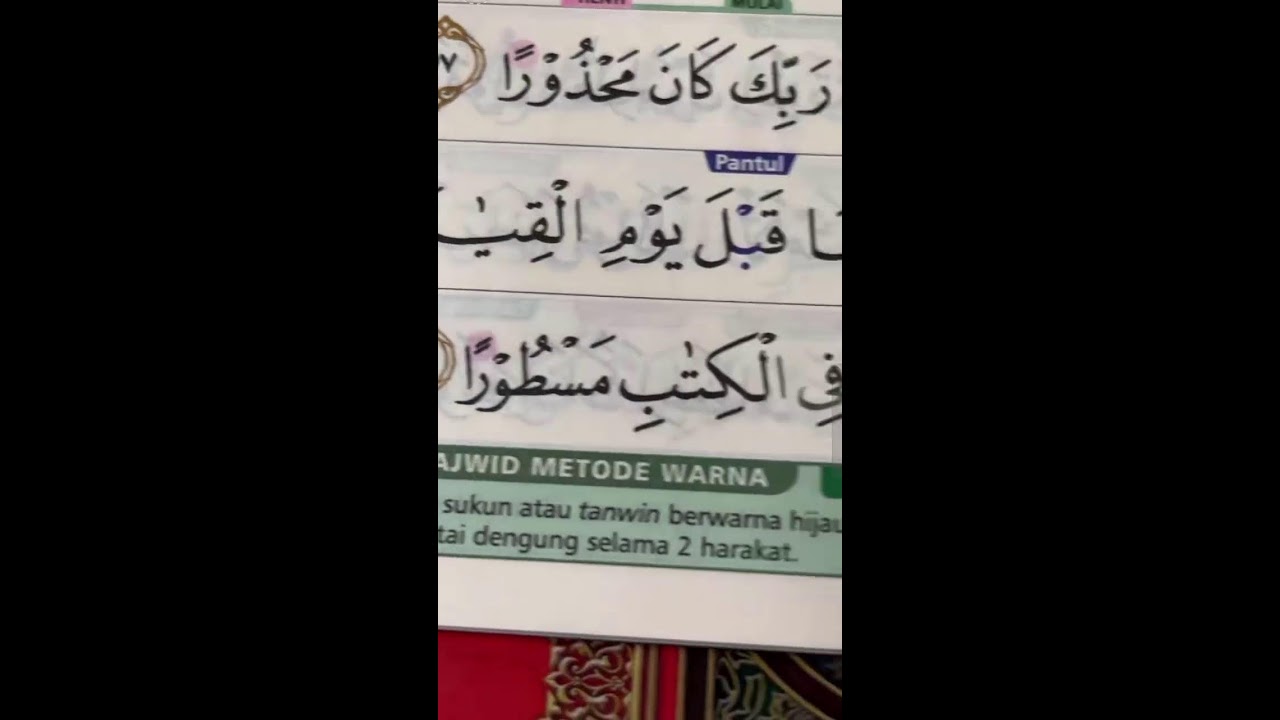 MULAI
رَبِّكَ كَانَ مَحْذُوْرًا
Pantul
قَبْلَ يَوْمِ
فِى الْكِتٰبِ مَسْطُوْرًا
METODE WARNA
sukun atau tanwin berwarna hijau
dengung selama 2 harakat.